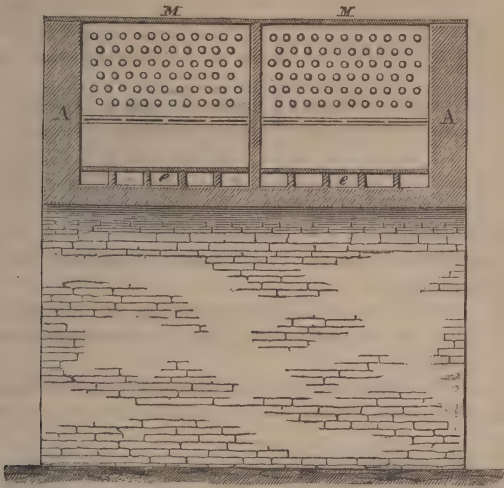 M M
A A
e e